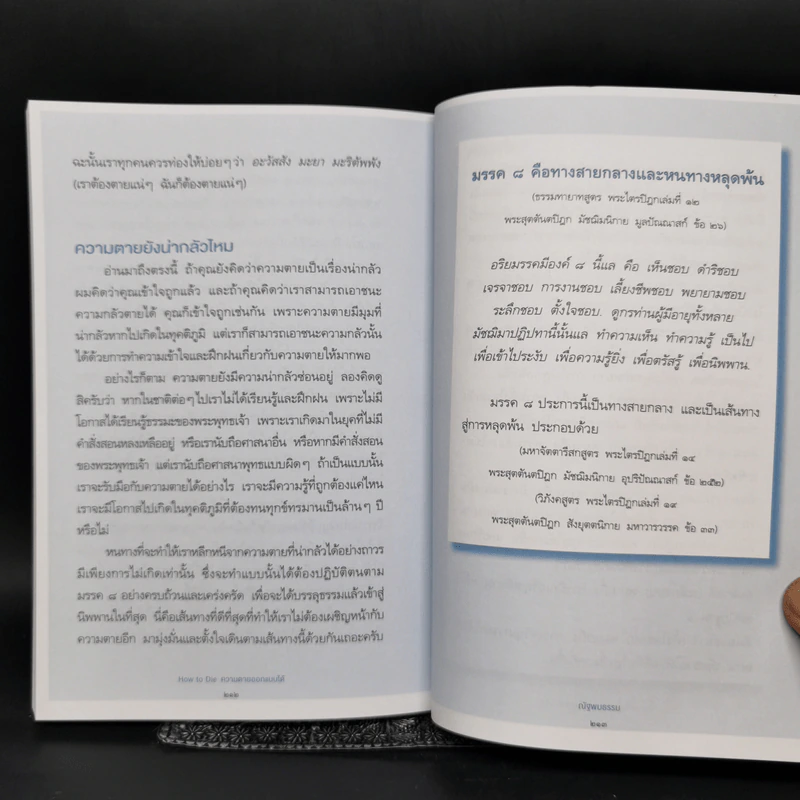 ฉะนั้นเราทุกคนควรท่องให้บ่อยๆ ว่า อะวัสสัง มะยา มะริตัพพัง
(เราต้องตายแน่ๆ ฉันก็ต้องตายแน่ๆ)
ความตายยังน่ากลัวไหม
อ่านมาถึงตรงนี้ ถ้าคุณยังคิดว่าความตายเป็นเรื่องน่ากลัว
ผมคิดว่าคุณเข้าใจถูกแล้ว และถ้าคุณคิดว่าเราสามารถเอาชนะ
ความกลัวตายได้ คุณก็เข้าใจถูกเช่นกัน เพราะความตายมีมุมที่
น่ากลัวหากไปเกิดในทุคติภูมิ แต่เราก็สามารถเอาชนะความกลัวนั้น
ได้ด้วยการทำความเข้าใจและฝึกฝนเกี่ยวกับความตายให้มากพอ
อย่างไรก็ตาม ความตายยังมีความน่ากลัวซ่อนอยู่ ลองคิดดู
สิครับว่า หากในชาติต่อๆ ไปเราไม่ได้เรียนรู้และฝึกฝน เพราะไม่มี
โอกาสได้เรียนรู้ธรรมะของพระพุทธเจ้า เพราะเราเกิดมาในยุคที่ไม่มี
คำสั่งสอนหลงเหลืออยู่ หรือเรานับถือศาสนาอื่น หรือหากมีคำสั่งสอน
ของพระพุทธเจ้า แต่เรานับถือศาสนาพุทธแบบผิดๆ ถ้าเป็นแบบนั้น
เราจะรับมือกับความตายได้อย่างไร เราจะมีความรู้ที่ถูกต้องแค่ไหน
เราจะมีโอกาสไปเกิดในทุคติภูมิที่ต้องทนทุกข์ทรมานเป็นล้านๆ ปี
หรือไม่
หนทางที่จะทำให้เราหลีกหนีจากความตายที่น่ากลัวได้อย่างถาวร
มีเพียงการไม่เกิดเท่านั้น ซึ่งจะทำแบบนั้นได้ต้องปฏิบัติตนตาม
มรรค ๘ อย่างครบถ้วนและเคร่งครัด เพื่อจะได้บรรลุธรรมแล้วเข้าสู่
นิพพานในที่สุด นี่คือเส้นทางที่ดีที่สุดที่ทำให้เราไม่ต้องเผชิญหน้ากับ
ความตายอีก มามุ่งมั่นและตั้งใจเดินตามเส้นทางนี้ด้วยกันเถอะครับ
How to Die ความตายออกแบบได้
๒๑๒
มรรค ๘ คือทางสายกลางและหนทางหลุดพ้น
(ธรรมทายาทสูตร พระไตรปิฎกเล่มที่ ๑๒
พระสุตตันตปิฎก มัชฌิมนิกาย มูลปัณณาสก์ ข้อ ๒๖)
อริยมรรคมีองค์ ๘ นี้แล คือ เห็นชอบ ดำริชอบ
เจรจาชอบ การงานชอบ เลี้ยงชีพชอบ พยายามชอบ
ระลึกชอบ ตั้งใจชอบ. ดูกรท่านผู้มีอายุทั้งหลาย
มัชฌิมาปฏิปทานี้นั้นแล ทำความเห็น ทำความรู้ เป็นไป
เพื่อเข้าไประงับ เพื่อความรู้ยิ่ง เพื่อตรัสรู้ เพื่อนิพพาน.
มรรค ๘ ประการนี้เป็นทางสายกลาง และเป็นเส้นทาง
สู่การหลุดพ้น ประกอบด้วย
(มหาจัตตารีสกสูตร พระไตรปิฎกเล่มที่ ๑๔
พระสุตตันตปิฎก มัชฌิมนิกาย อุปริปัณณาสก์ ข้อ ๒๕๒)
(วิภังคสูตร พระไตรปิฎกเล่มที่ ๑๙
พระสุตตันตปิฎก สังยุตตนิกาย มหาวารวรรค ข้อ ๓๓)
ณัฐพบธรรม
๒๑๓